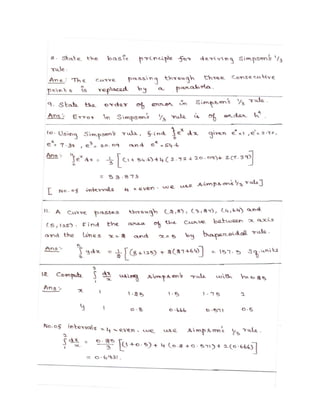 8. State the basic principle for deriving Simpson's 1/3
rule.
Ans: The curve passing through three consecutive
points is replaced by a parabola.
9. State the order of error in Simpson's 1/3 rule.
Ans: Error in Simpson's 1/3 rule is of order h⁴
10. Using Simpson's rule, find ∫₀⁴ eˣ dx given e⁰=1, e¹=2.72,
e²=7.39, e³=20.09 and e⁴=54.6
Ans: ∫₀⁴ eˣ dx = 1/3 [(1+54.6)+4(2.72+20.09)+2(7.39)]
= 53.873
[No. of intervals 4 = even. we use Simpson's 1/3 rule]
11. A curve passes through (2,8), (3,27), (4,64) and
(5,125). Find the area of the curve between x axis
and the lines x=2 and x=5 by trapezoidal rule.
Ans: ∫₂⁵ ydx = 1/2 [(8+125)+2(27+64)] = 157.5 Sq.units
12. Compute ∫₁² dx/x using Simpson's rule with h=0.25
Ans:
x 1 1.25 1.5 1.75 2
y 1 0.8 0.666 0.571 0.5
No.of intervals = 4 = even, we use Simpson's 1/3 rule.
∫₁² dx/x = 0.25/3 [(1+0.5)+4(0.8+0.571)+2(0.666)]
= 0.6931.